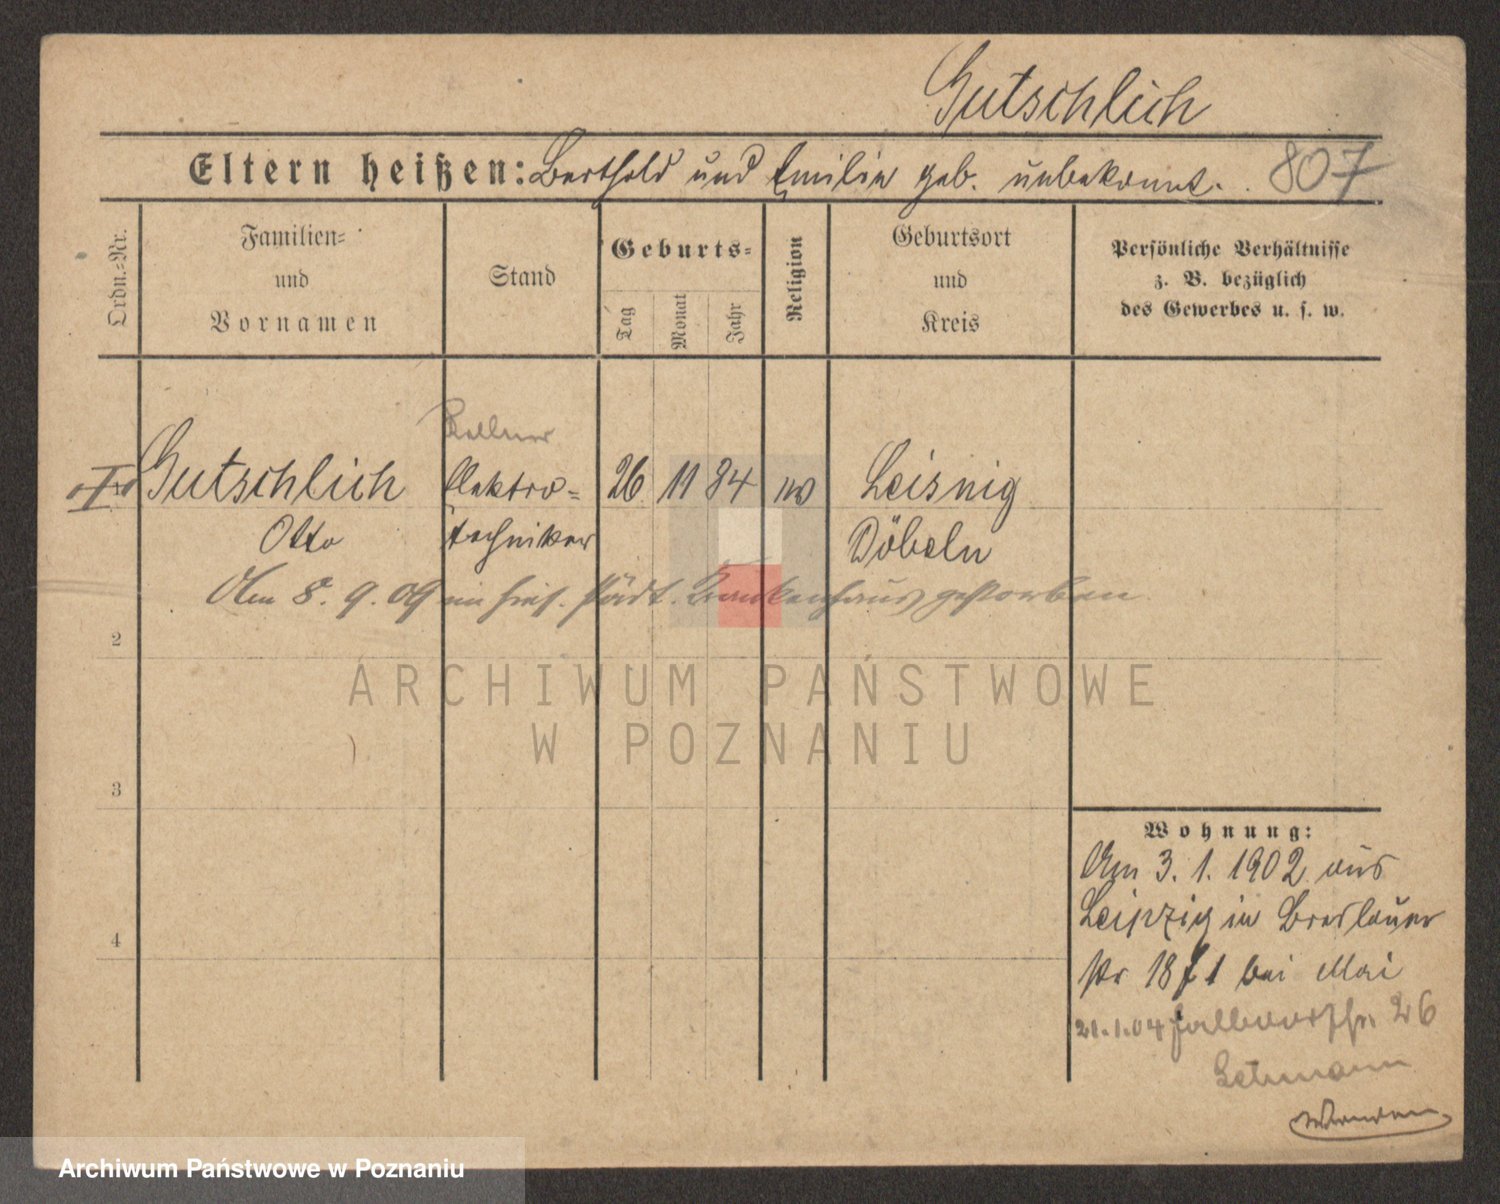 Gutschlich
Eltern heißen: Berthold und Emilie geb. unbekannt. 807
Ordn.=Nr.
Familien=
und
Vornamen
Stand
Geburts=
Tag
Monat
Jahr
Religion
Geburtsort
und
Kreis
Persönliche Verhältnisse
z. B. bezüglich
des Gewerbes u. s. w.
Kellner
Gutschlich Elektro= 26 11 84 Leisnig
Otto techniker Döbeln
Am 8. 9. 09 im hies. städt. Krankenhaus gestorben
2
ARCHIWUM PAŃSTWOWE
W POZNANIU
3
4
Wohnung:
Am 3. 1. 1902 aus
Leipzig in Breslauer
str 18 I bei Mai
21.1.04 26
Wenden
Archiwum Państwowe w Poznaniu